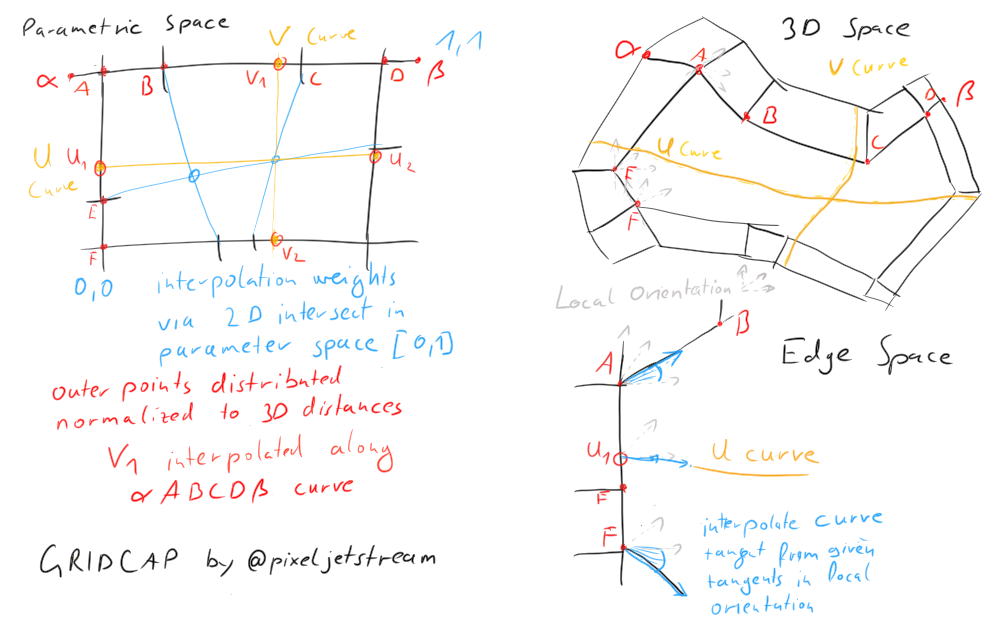 Parametric Space
V Curve
1,1
α
A
B
V1
C
D
β
U
Curve
U1
U2
E
F
V2
0,0
interpolation weights
via 2D intersect in
parameter space [0,1]
outer points distributed
normalized to 3D distances
V1 interpolated along
αABCDβ curve
GRIDCAP by @pixeljetstream
3D Space
V Curve
α
A
B
C
D
β
U Curve
E
F
Local Orientation
Edge Space
A
B
U1
U curve
E
F
interpolate curve
tangat from given
tangents in local
orientation